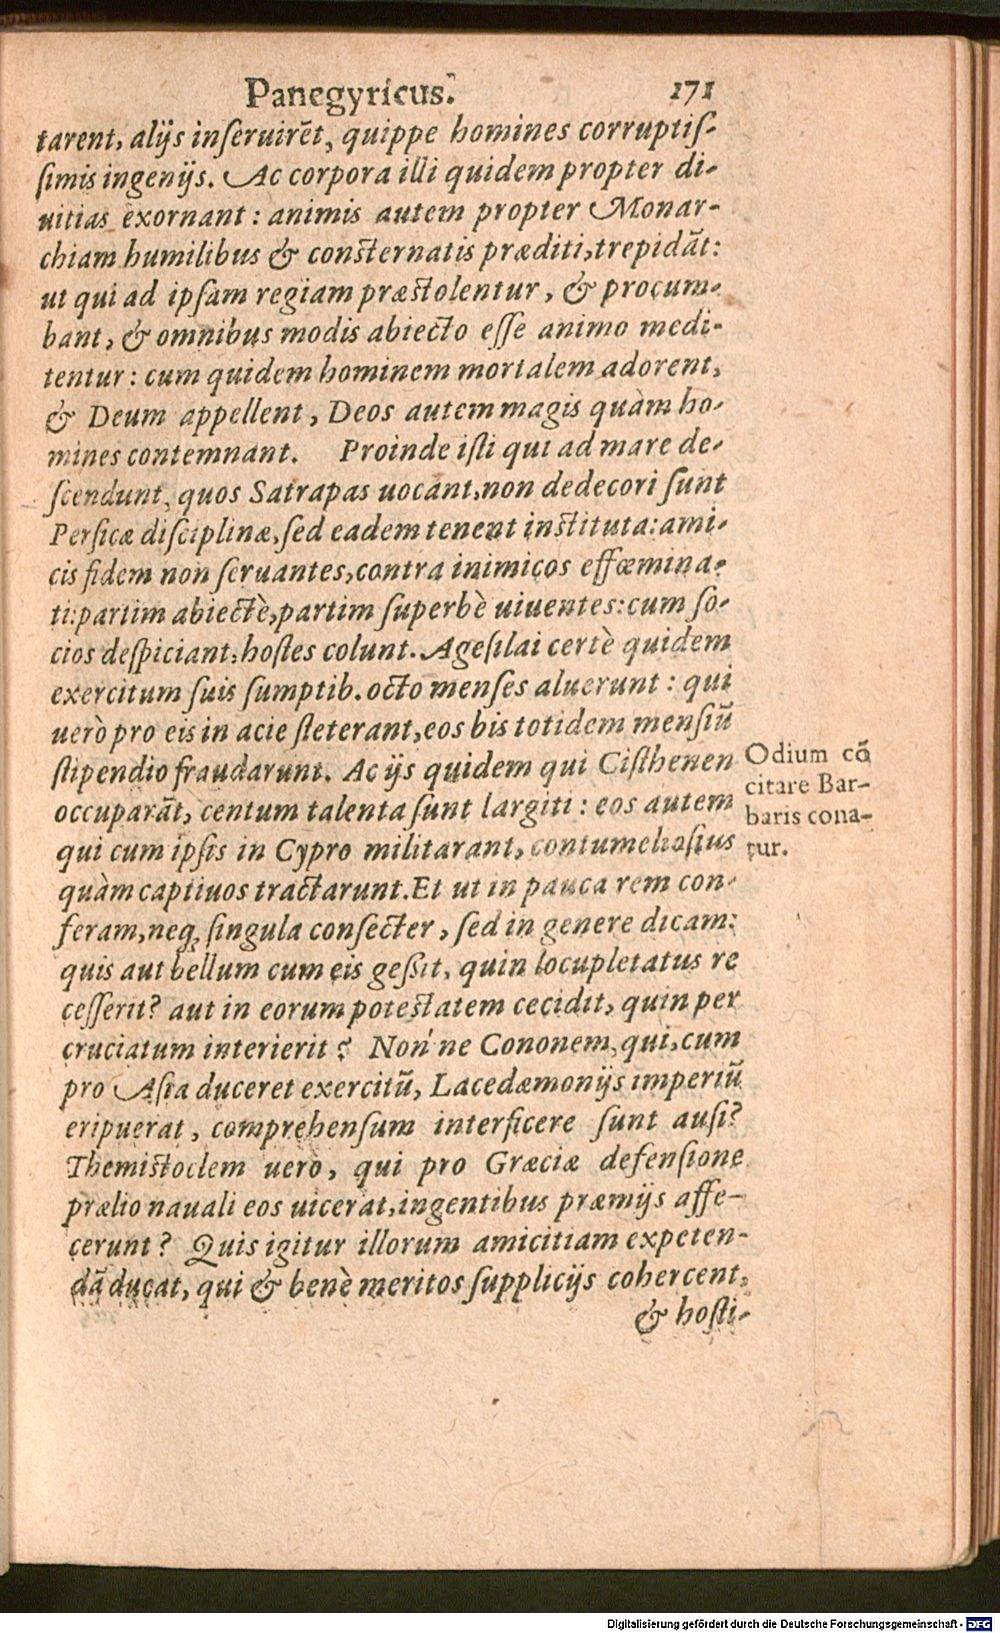 Panegyricus. 171
tarent, alijs inſeruirēt, quippe homines corruptiſ-
ſimis ingenijs. Ac corpora illi quidem propter di-
uitias exornant: animis autem propter Monar-
chiam humilibus & conſternatis præditi, trepidāt:
ut qui ad ipſam regiam præſtolentur, & procum-
bant, & omnibus modis abiecto eſſe animo medi-
tentur: cum quidem hominem mortalem adorent,
& Deum appellent, Deos autem magis quàm ho-
mines contemnant. Proinde iſti qui ad mare de-
ſcendunt, quos Satrapas uocant, non dedecori ſunt
Perſicæ diſciplinæ, ſed eadem tenent inſtituta: ami-
cis fidem non ſeruantes, contra inimicos effœmina-
ti: partim abiectè, partim ſuperbè uiuentes: cum ſo-
cios deſpiciant, hoſtes colunt. Ageſilai certè quidem
exercitum ſuis ſumptib. octo menſes aluerunt: qui
uerò pro eis in acie ſteterant, eos bis totidem menſiū
ſtipendio fraudarunt. Ac ijs quidem qui Ciſthenen
occuparāt, centum talenta ſunt largiti: eos autem
qui cum ipſis in Cypro militarant, contumelioſius
quàm captiuos tractarunt. Et ut in pauca rem con-
feram, neq; ſingula conſecter, ſed in genere dicam:
quis aut bellum cum eis geßit, quin locupletatus re
ceſſerit? aut in eorum poteſtatem cecidit, quin per
cruciatum interierit? Non'ne Cononem, qui, cum
pro Aſia duceret exercitū, Lacedæmonijs imperiū
eripuerat, comprehenſum interficere ſunt auſi?
Themiſtoclem uerò, qui pro Græciæ defenſione
prælio nauali eos uicerat, ingentibus præmijs affe-
cerunt? Quis igitur illorum amicitiam expeten-
dā ducat, qui & benè meritos ſupplicijs cohercent,
& hoſti-
Odium cō
citare Bar-
baris cona-
tur.
Digitalisierung gefördert durch die Deutsche Forschungsgemeinschaft - DFG